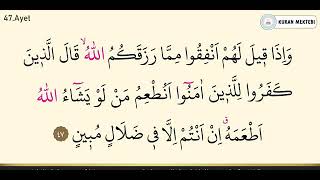 47.Ayet
KURAN MEKTEBİ
وَاِذَا ق۪يلَ لَهُمْ اَنْفِقُوا مِمَّا رَزَقَكُمُ اللّٰهُۙ قَالَ الَّذ۪ينَ
كَفَرُوا لِلَّذ۪ينَ اٰمَنُٓوا اَنُطْعِمُ مَنْ لَوْ يَشَٓاءُ اللّٰهُ
اَطْعَمَهُۗ اِنْ اَنْتُمْ اِلَّا ف۪ي ضَلَالٍ مُب۪ينٍ ٤٧